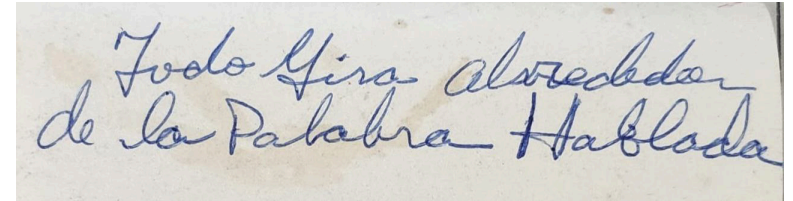 Todo Gira alrededor
de la Palabra Hablada